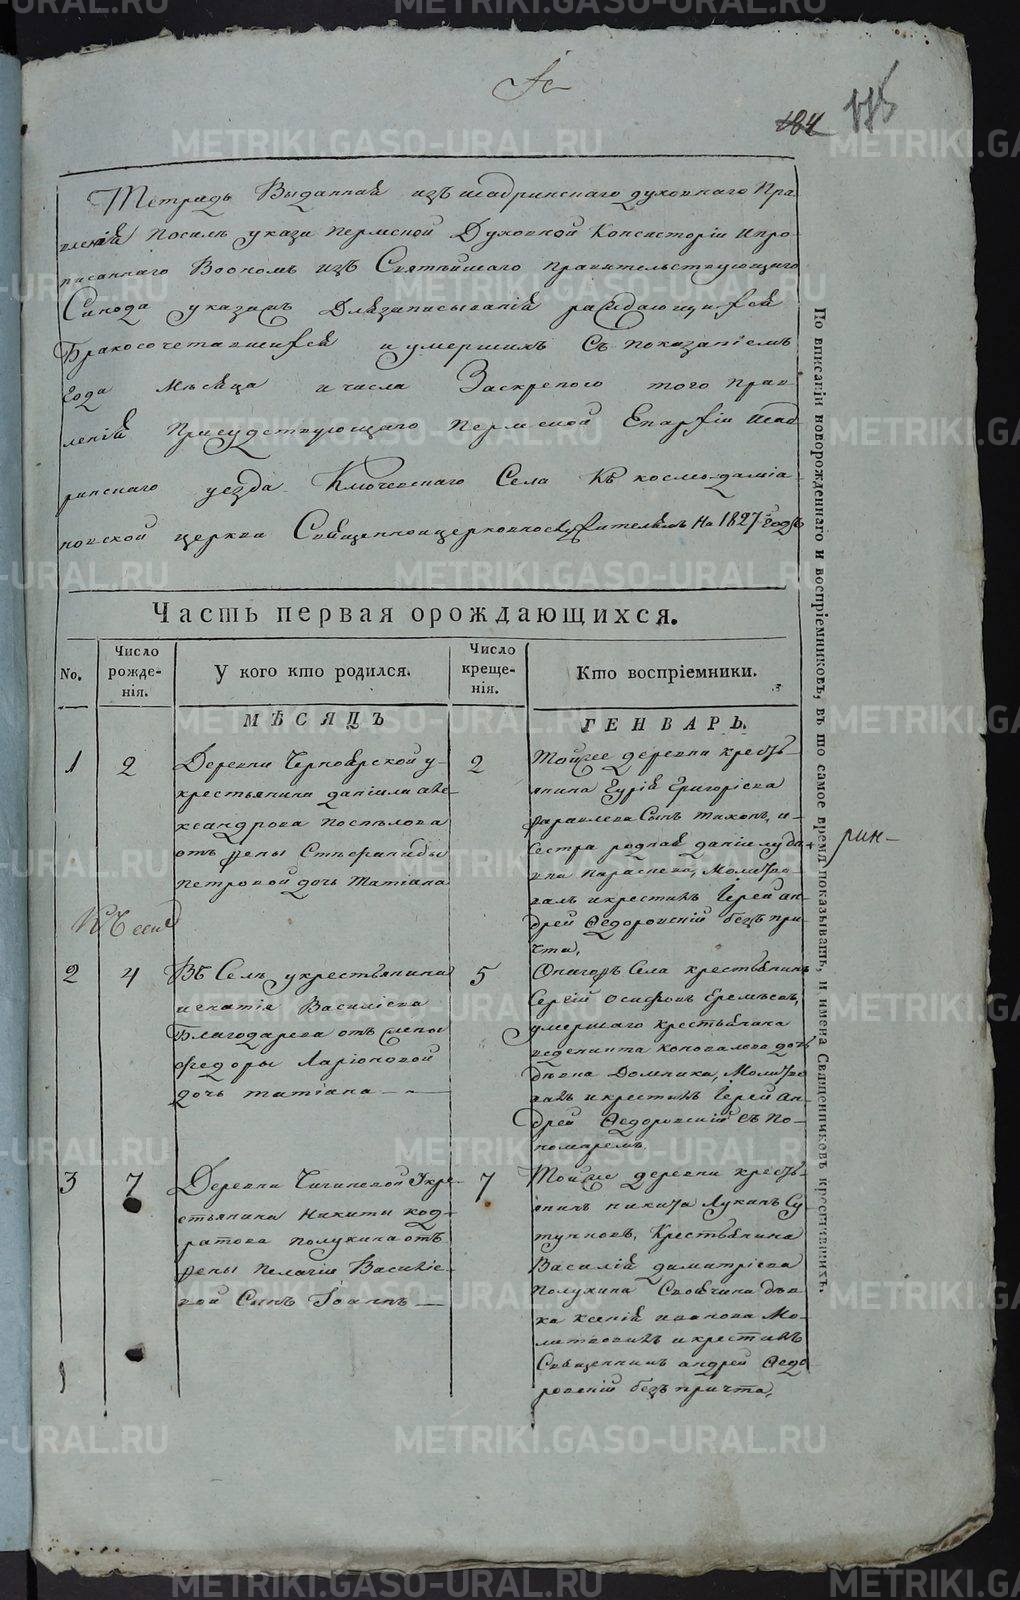 184
Тетрадь Выданная изъ шадринскаго духовнаго Пра
вленія Посилѣ указа Пермской Духовной Консисторіи ипро
писаннаго Вономъ изъ Святѣйшаго Правительствующаго
Синода указамъ Длязаписыванія раждающихся
Бракосочетавшихся иумершихъ Съ показаніемъ
Года Мѣсяца ичисла Заскрепою того Прав
ленія Присудствующаго Пермской Епархіи Шад
ринскаго уезда Ключевскаго Села Къ космодаміа
новской церкви Священноцерковнослужителямъ На 1827 годъ
Часть первая орождающихся.
No.
Число рожденія.
У кого кто родился.
Число крещенія.
Кто воспріемники.
МѢСЯЦЪ
ГЕНВАРЬ.
1
2
Деревни Черноярской у
крестьянина даніила але
ксандрова Поспѣлова
отъ жены Стефаниды
Петровой дочь Татіана
2
Тойже деревни кресть
янина Гурія Григоріева
Сынъ тихонъ, и
Сестра родная даніилу дѣ
вка Параскева, Молитво
валъ икрестилъ Іерей ан
дрей Ѳедоровскій безъ при
чта,
2
4
Въ Селѣ укрестьянина
игнатія Василіева
Благодарева отъ жены
Ѳедоры Ларіоновой
дочь татіана
5
Онагожъ Села крестьянинъ
Сергій осиповъ Еремѣевъ,
умершаго крестьянина
викентия коновалова дочь
дѣвка Домника, Молитво
валъ икрестилъ Іерей Ан
дрей Ѳедоровскій съ По
номаремъ
3
7
Деревни Чигиневой Укре
стьянина Никиты код
ратова полухина отъ
жены Пелагіи Василіе
вой Сынъ Іоаннъ
7
Тойже деревни кресть
янинъ никита Лукинъ Су
тункинъ, Крестьянина
Василія димитріева
Полухина Своячина дѣв
ка ксенія иванова Мо
литвовалъ икрестилъ
Священникъ андрей Ѳедо
ровскій безъ причта,
По вписаніи новорожденнаго и воспріемниковъ, въ то самое время показывать, и имена Священниковъ крестившихъ.
рин
METRIKI.GASO-URAL.RU